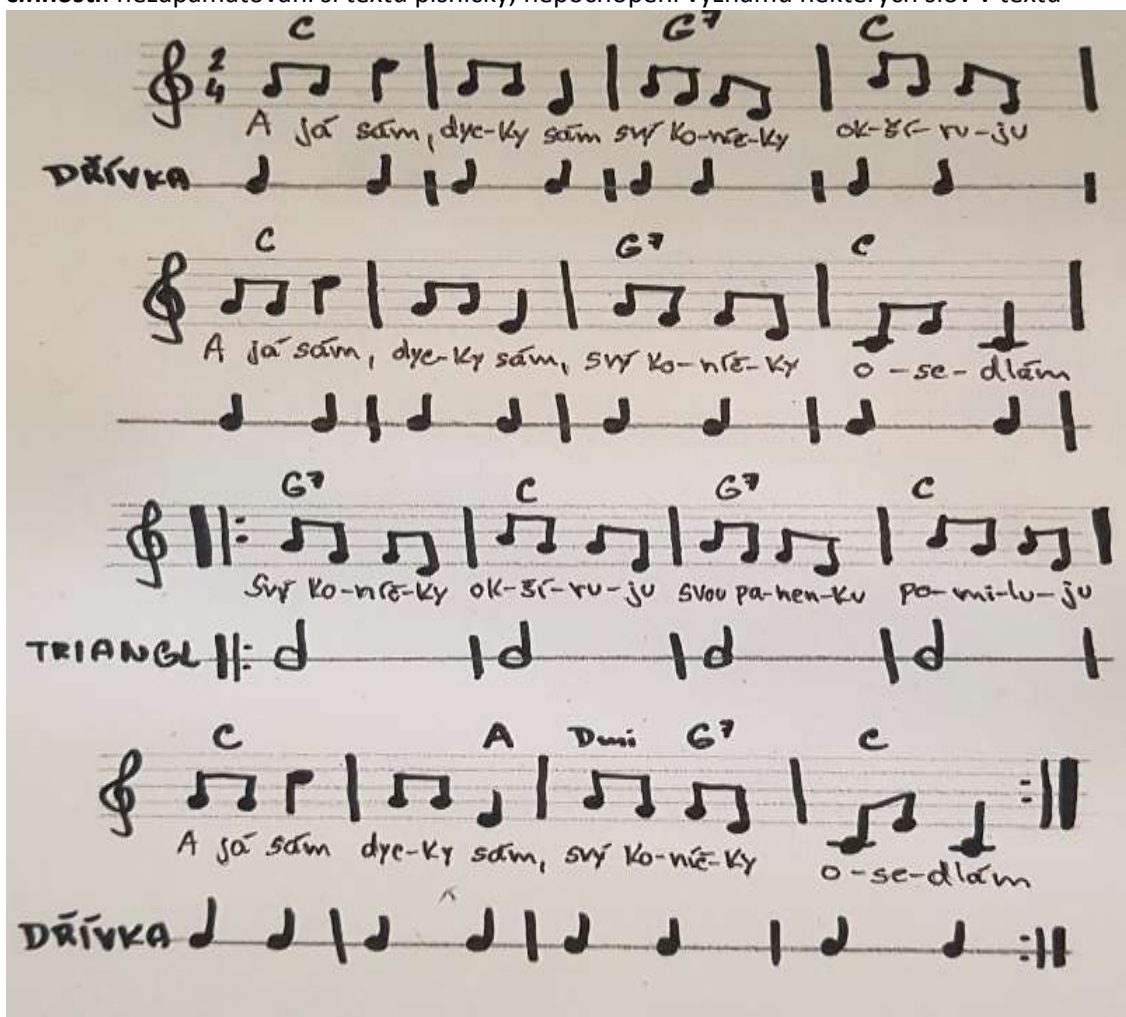 činnosti: nezapamatování si textu písničky, nepochopení významu některých slov v textu
C G7 C
2
4
A já sám, dyc-ky sám svý ko-níč-ky ok-ší-ru-ju
DŘÍVKA
C G7 C
A já sám, dyc-ky sám, svý ko-níč-ky o-se-dlám
G7 C G7 C
Svý ko-níč-ky ok-ší-ru-ju svou pa-nen-ku po-mi-lu-ju
TRIANGL
C A Dmi G7 C
A já sám dyc-ky sám, svý ko-níč-ky o-se-dlám
DŘÍVKA